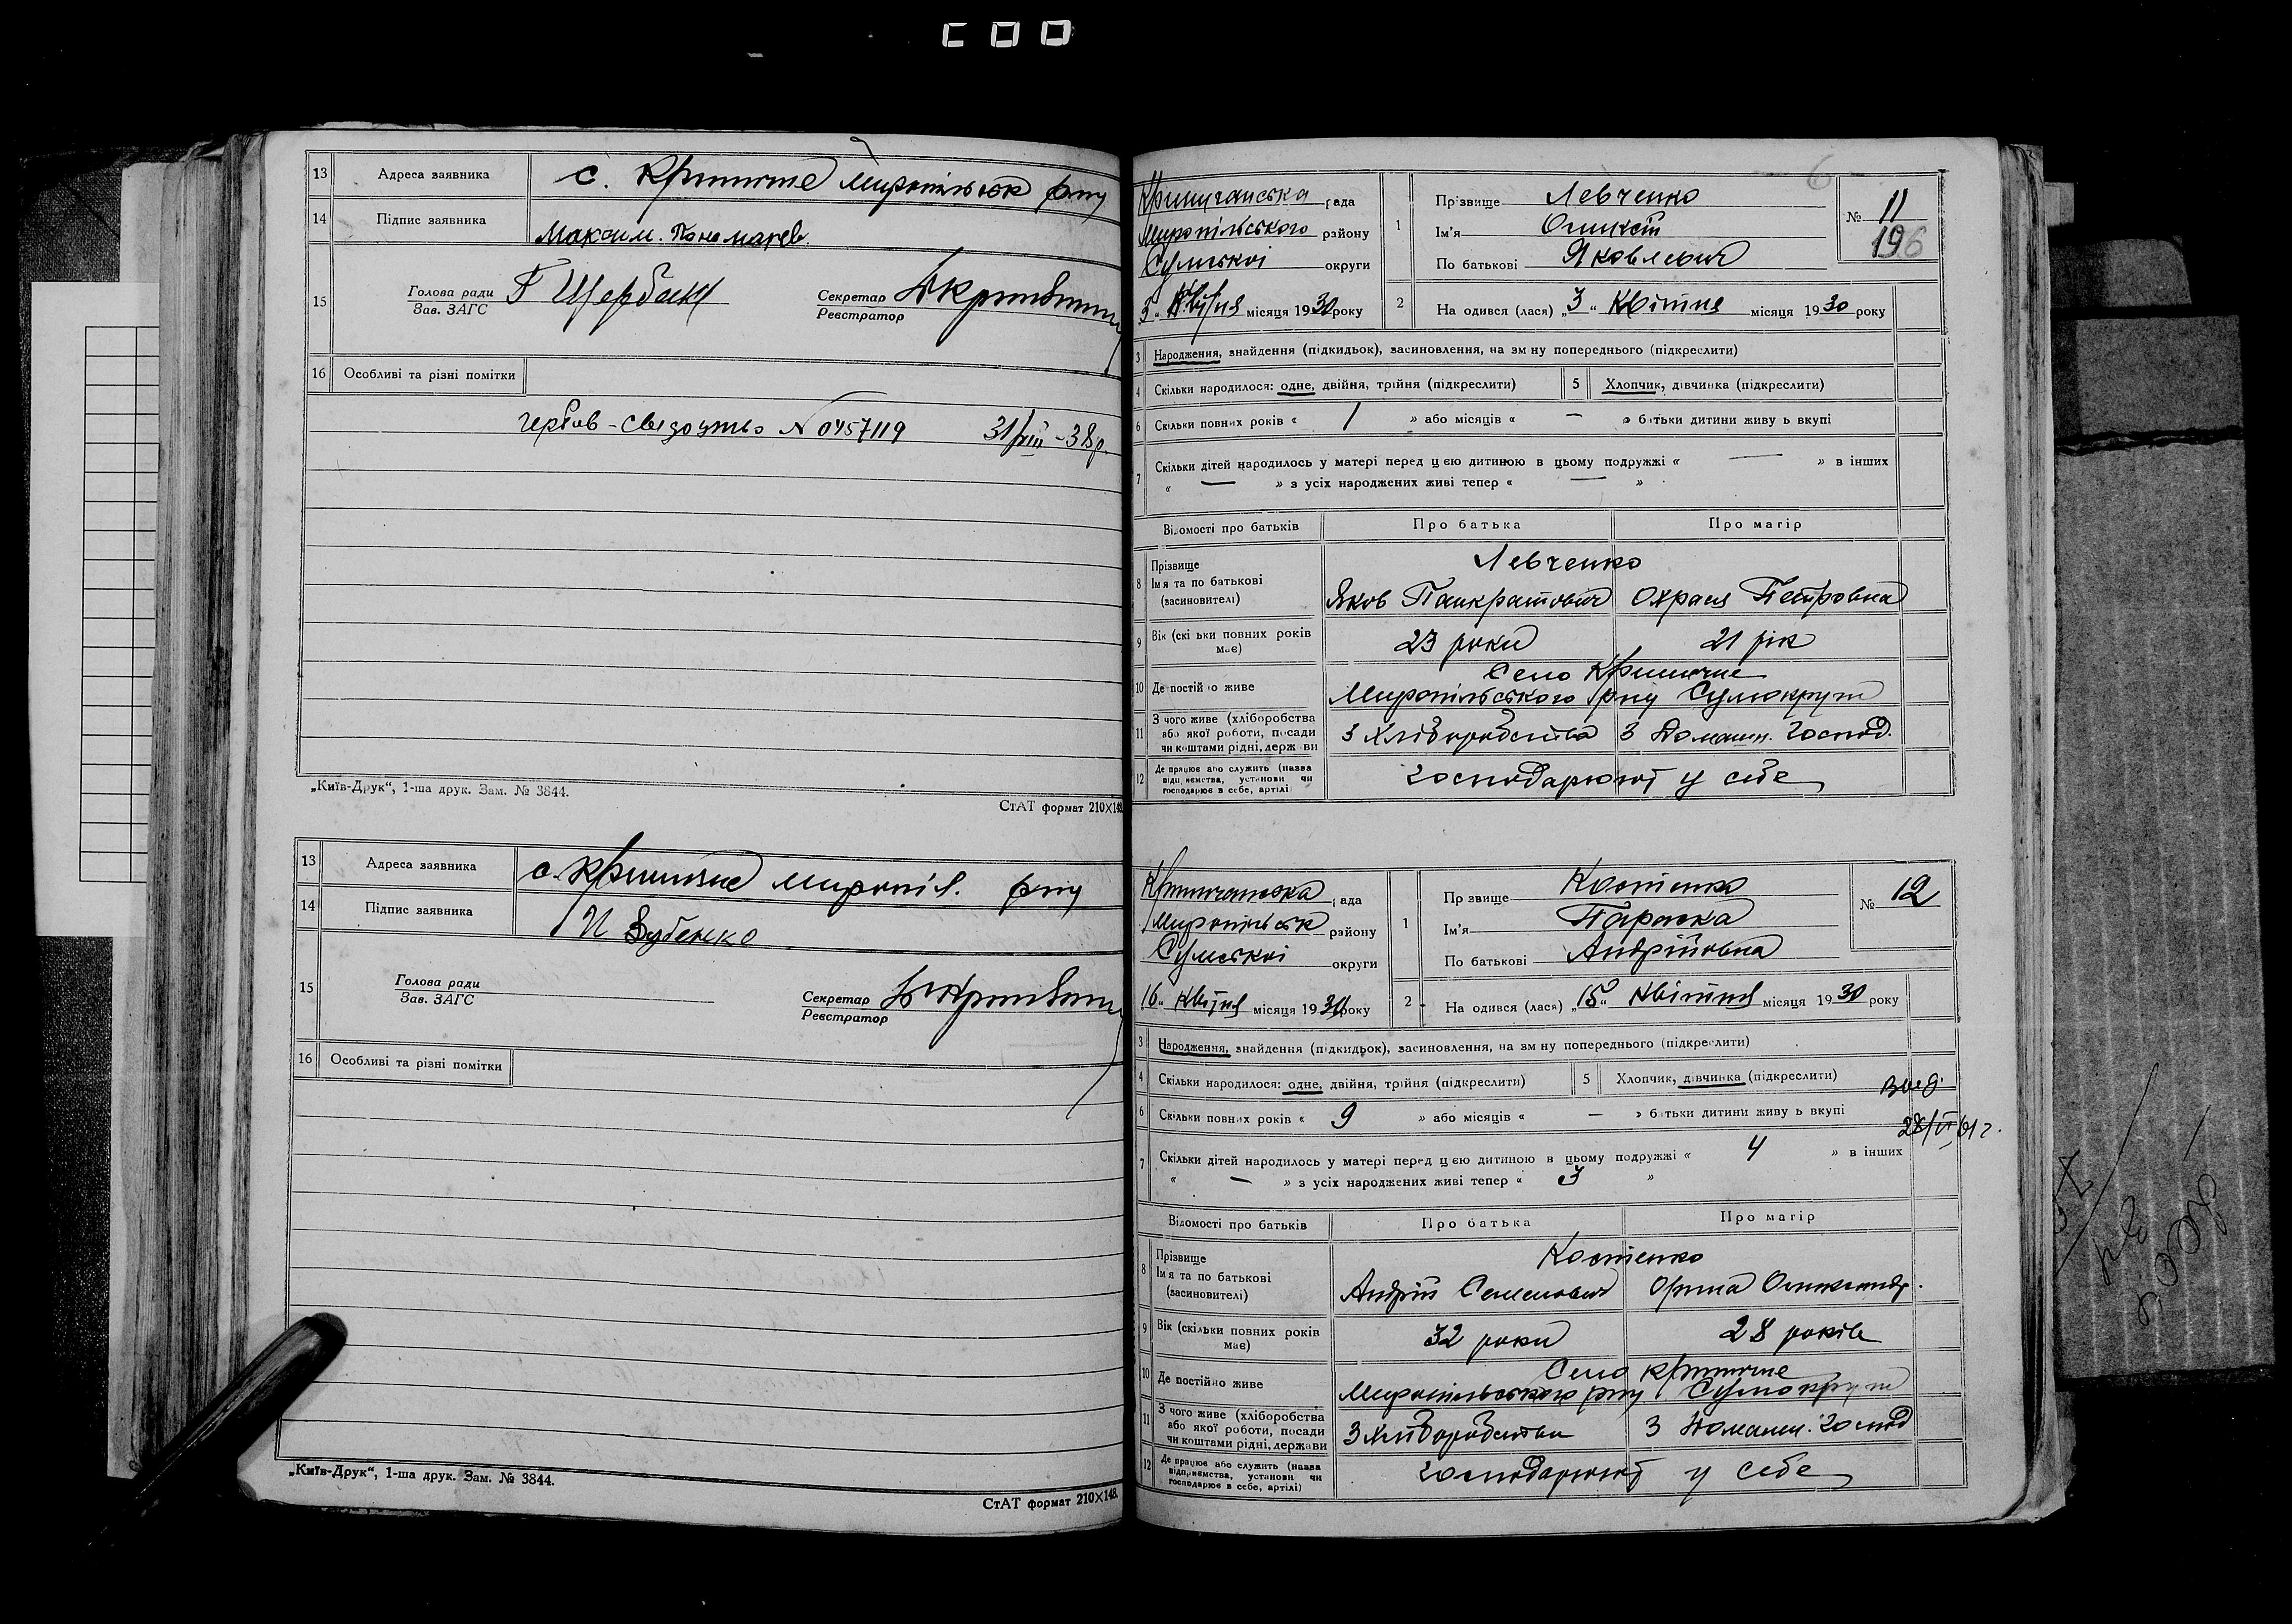 13 Адреса заявника с. Криничне Миропільськ р-ну
14 Підпис заявника Максим. Пономарев.
15 Голова ради Г Щербак Секретар
Зав. ЗАГС Реєстратор
16 Особливі та різні помітки
№ 0457119 31/VIII-38р.
„Київ-Друк“, 1-ша друк. Зам. № 3844.
СтАТ формат 210×148.
13 Адреса заявника с. Криничне Миропіл. р-ну
14 Підпис заявника И Зубенко
15 Голова ради Секретар
Зав. ЗАГС Реєстратор
16 Особливі та різні помітки
„Київ-Друк“, 1-ша друк. Зам. № 3844.
СтАТ формат 210×148.
6
Криничанська рада
Миропільського району
Сумської округи
„3“ Квітня місяця 1930 року
1 Прізвище Левченко
Ім'я
По батькові Яковлевич
№ 11
196
2 На одився (лася) „3“ Квітня місяця 1930 року
3 Народження, знайдення (підкидьок), засиновлення, на зм ну попереднього (підкреслити)
4 Скільки народилося: одне, двійня, трійня (підкреслити) 5 Хлопчик, дівчинка (підкреслити)
6 Скільки повних років « 1 » або місяців « — » батьки дитини живу ь вкупі
7 Скільки дітей народилось у матері перед цією дитиною в цьому подружжі « — » в інших
« — » з усіх народжених живі тепер « — »
Відомості про батьків Про батька Про матір
8 Прізвище Левченко
Ім я та по батькові
(засиновителі) Яков Панкратович Охрася Петровна
9 Вік (скі ьки повних років має) 23 роки 21 рік
10 Де постійно живе Село Криничне
Миропільського р-ну Сумокруги
11 З чого живе (хліборобства
або якої роботи, посади
чи коштами рідні, держ ви З Хліборобства З Домашн. Господ.
12 Де працює або служить (назва
підприємства, установи чи
господарює в себе, артілі) господарюют у себе
Криничанська рада
Миропільськ району
Сумської округи
„16“ Квітня місяця 1930 року
1 Пр звище Костенко
Ім'я Параска
По батькові Андрійовна
№ 12
2 На одився (лася) „15“ Квітня місяця 1930 року
3 Народження, знайдення (підкидьок), засиновлення, на зм ну попереднього (підкреслити)
4 Скільки народилося: одне, двійня, трійня (підкреслити) 5 Хлопчик, дівчинка (підкреслити)
6 Скільки повних років « 9 » або місяців « — » батьки дитини живу ь вкупі
28/VI 61 г.
7 Скільки дітей народилось у матері перед цією дитиною в цьому подружжі « 4 » в інших
« — » з усіх народжених живі тепер « 3 »
Відомості про батьків Про батька Про матір
8 Прізвище Костенко
Ім я та по батькові
(засиновителі) Андрій Семенович Орина Олександр.
9 Вік (скільки повних років має) 32 роки 28 років
10 Де постійно живе Село Криничне
Миропільського р-ну Сумокруги
11 З чого живе (хліборобства
або якої роботи, посади
чи коштами рідні, держави З Хліборобства З Домашн. Господ
12 Де працює або служить (назва
підприємства, установи чи
господарює в себе, артілі) господарюют у себе